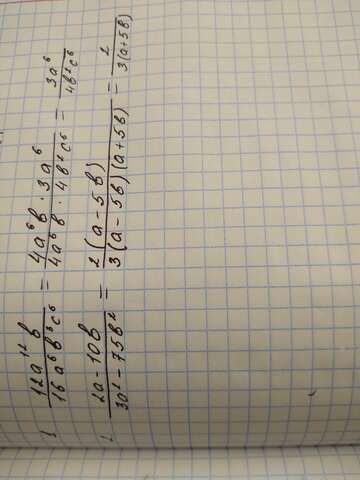 12a¹²b / 16a⁶b³c⁶ = 4a⁶b · 3a⁶ / 4a⁶b · 4b²c⁶ = 3a⁶ / 4b²c⁶
2a-10b / 3a²-75b² = 2(a-5b) / 3(a-5b)(a+5b) = 2 / 3(a+5b)